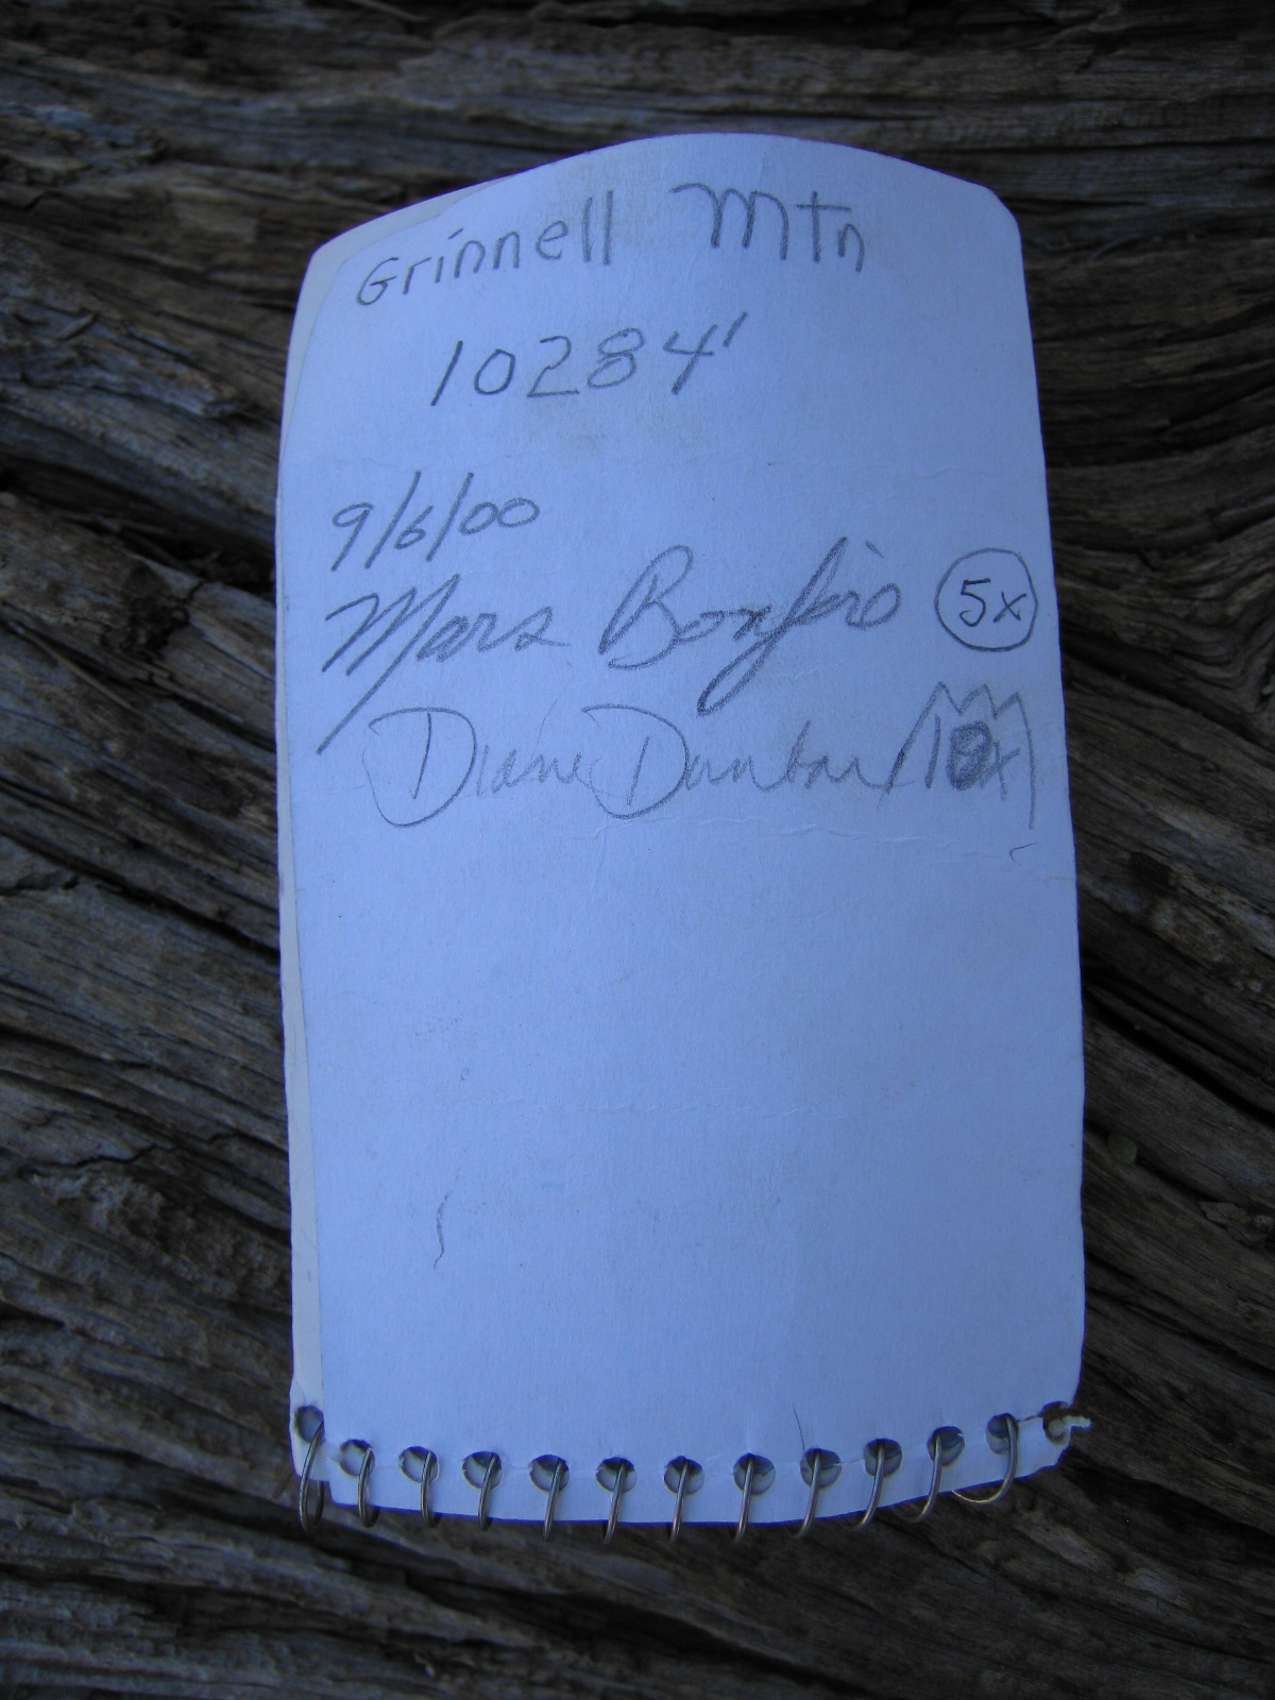 Grinnell Mtn
10284'
9/6/00
Mars Bonfire 5x
Diane Dunbar 10x